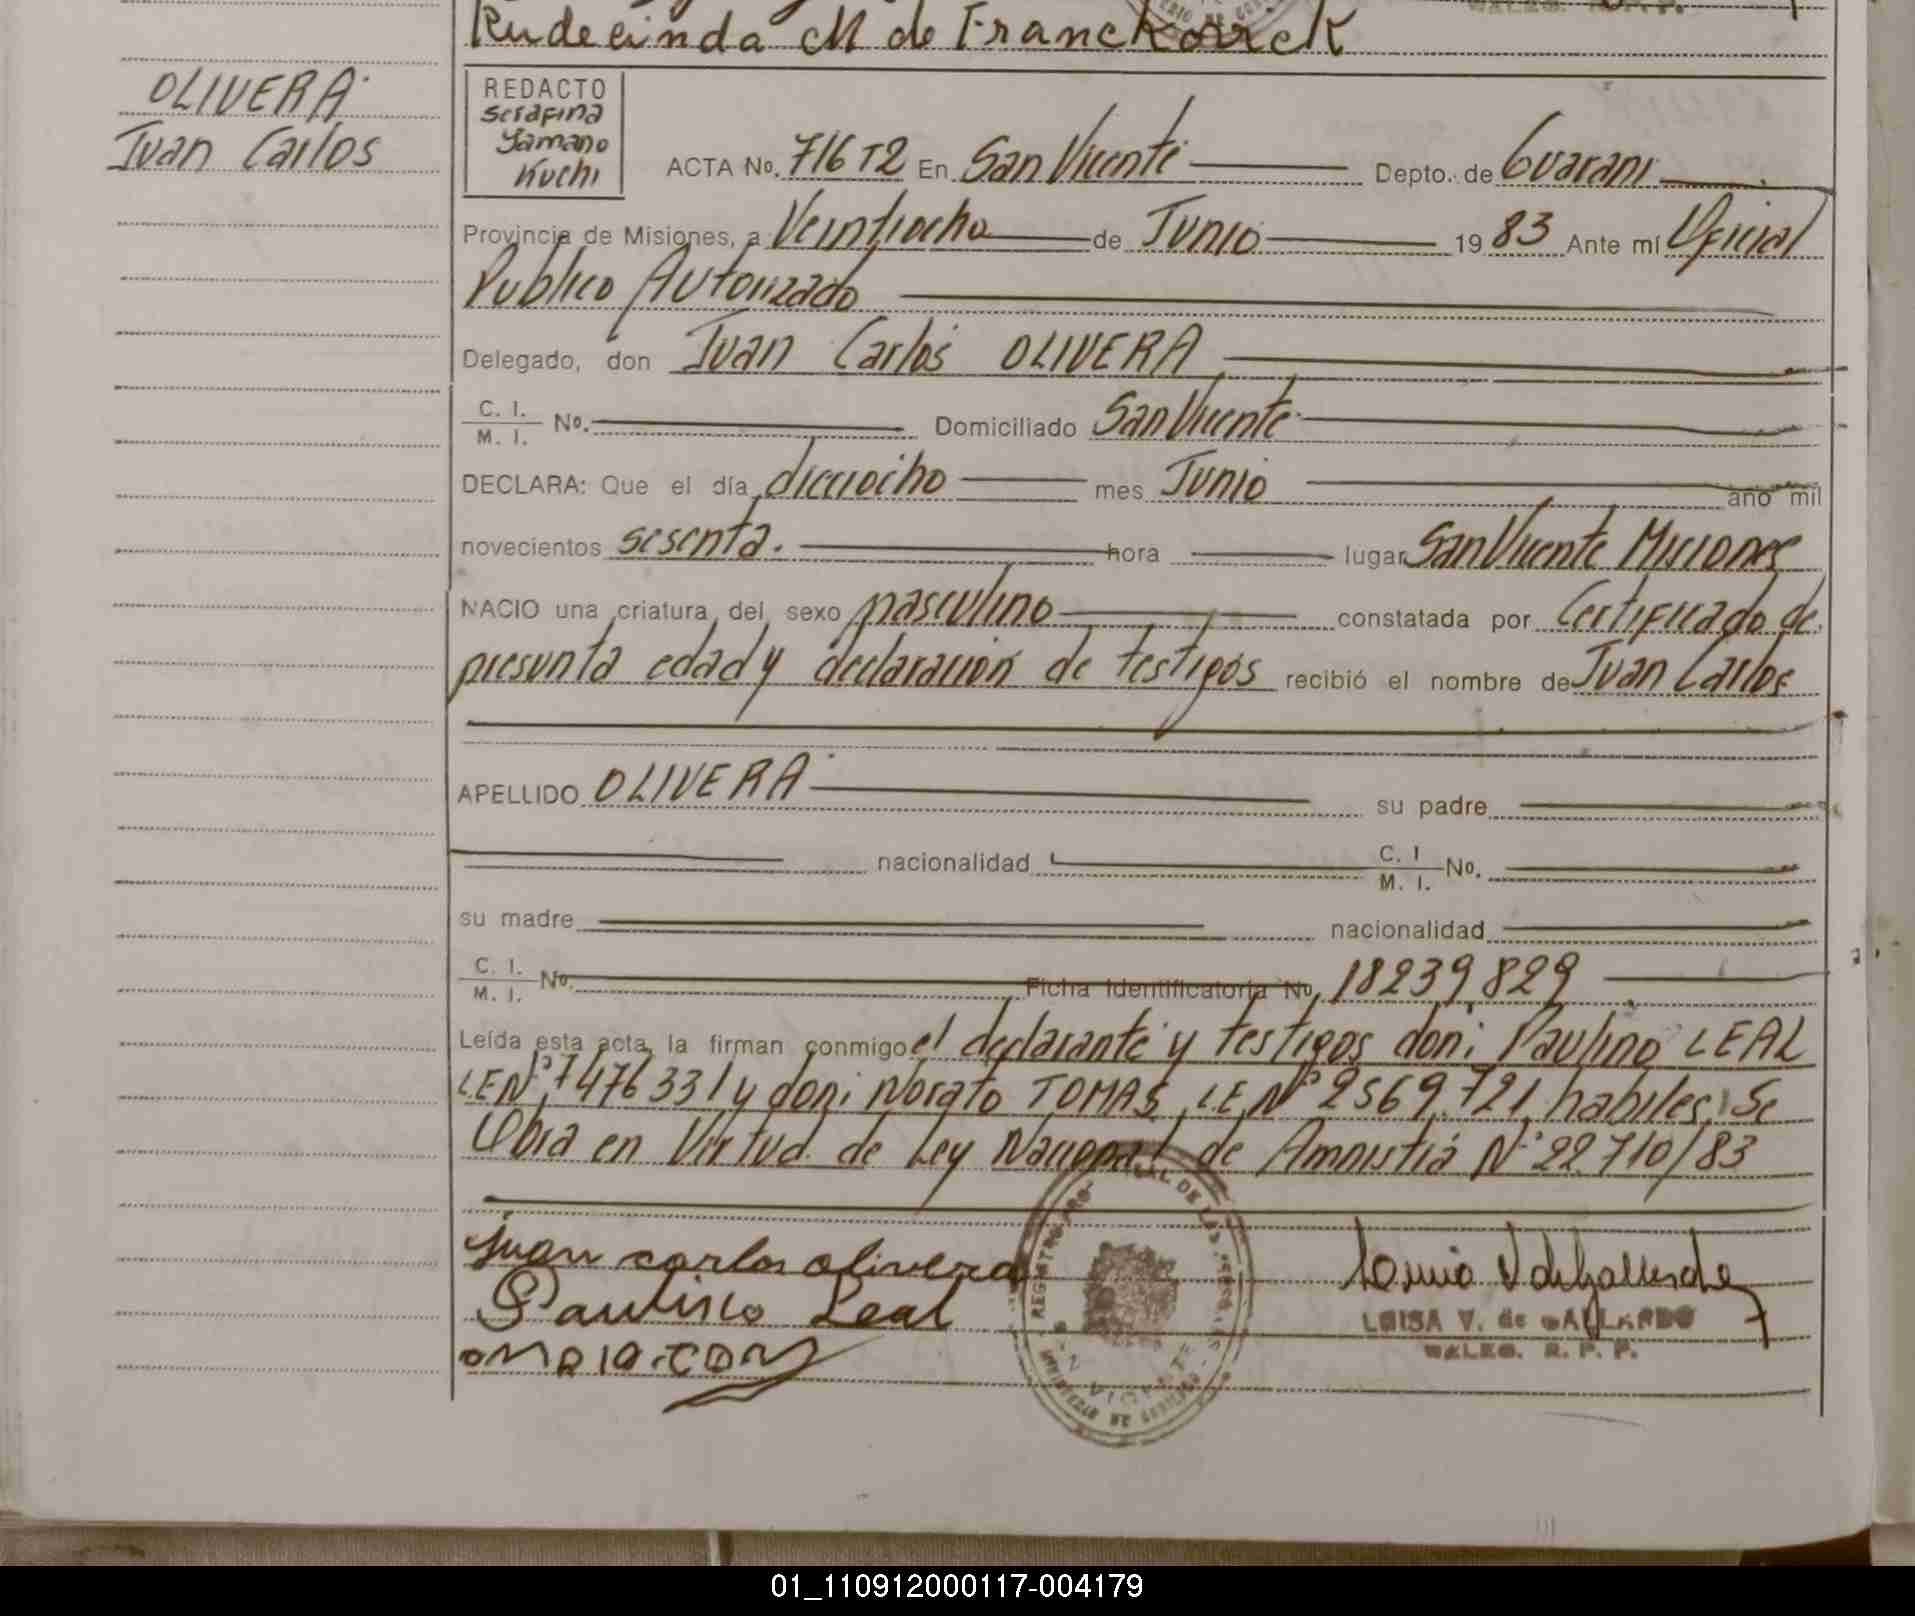 Rudecinda M de Franckorck
OLIVERA
Juan Carlos
REDACTO
Serafina
Yamano
Kuchi
ACTA No. 716 T2 En San Vicente Depto. de Guarani
Provincia de Misiones, a Veintiocho de Junio 19 83 Ante mí Oficial
Publico Autorizado
Delegado, don Juan Carlos OLIVERA
C. I.
M. I. No. Domiciliado San Vicente
DECLARA: Que el día dieciocho mes Junio año mil
novecientos sesenta. hora lugar San Vicente Misiones
NACIO una criatura del sexo masculino constatada por Certificado de
presunta edad y declaración de testigos recibió el nombre de Juan Carlos
APELLIDO OLIVERA su padre
nacionalidad C. I
M. I. No.
su madre nacionalidad
C. I.
M. I. No. Ficha Identificatoria No. 18239829
Leída esta acta, la firman conmigo el declarante y testigos don: Paulino LEAL
LE Nº 7476331 y don: Norato TOMAS, L.E. Nº 2569.721, habiles; Se
Obra en Virtud de Ley Nacional de Amnistiá Nº 22.710/83
Juan carlos olivera
Leal
LUISA V. de GALLARDO
R. P. P.
REGISTRO DE LAS
01_110912000117-004179